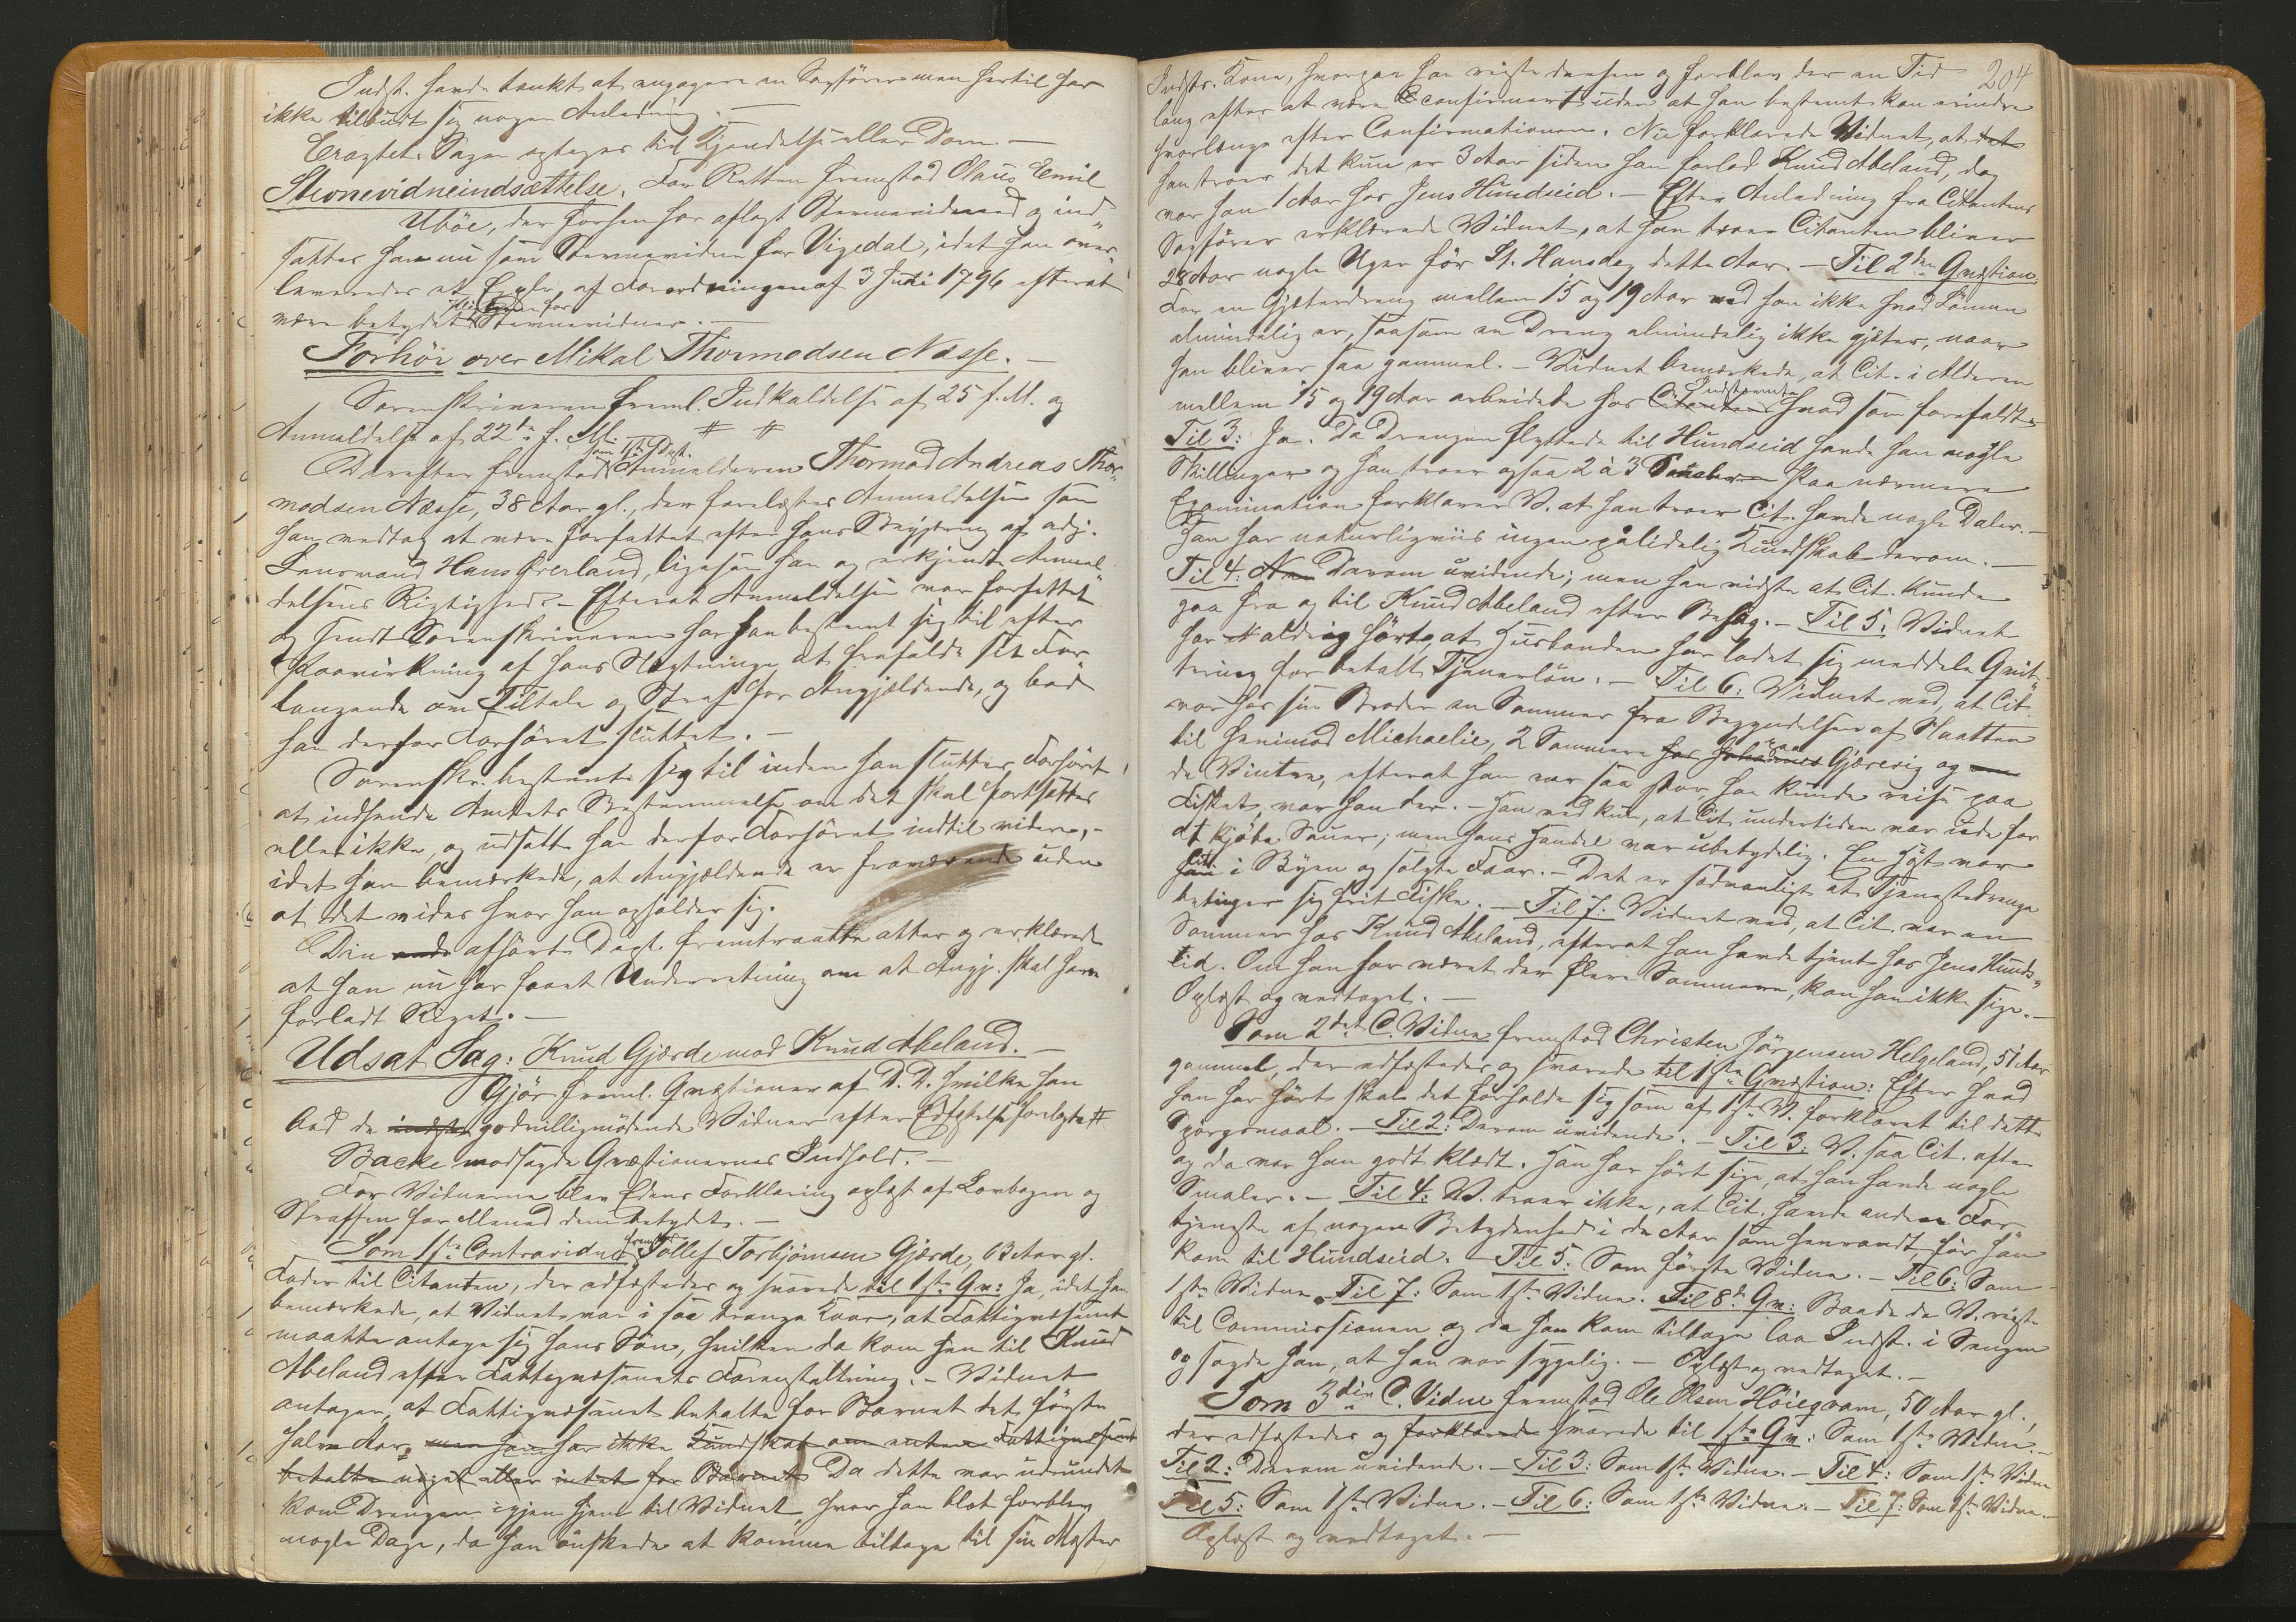 Indst. havde tænkt at engagere en Sagfører men hertil har
ikke tilbudt sig nogen Anledning. —
Eragtet: Sagen optages til Kjendelse eller Dom. —
Stevnevidneindsættelse. For Retten fremstod Olaus Emil
Ubøe, der forhen har aflagt Stevnevidneed og ind„
sattes han nu som Stevnevidne for Vigedal, idet han over„
leveredes et Explr. af Forordningen af 3 Juni 1796 efterat
være betydet Pligten for Stevnevidner. —
Forhör over Mikal Thormodsen Næsse. —
Sorenskriveren freml. Indkaldelse af 25 f. M. og
Anmeldelse af 22de f. M: — # #
Derefter fremstod som 1ste Dept. Anmelderen Thormod Andreas Thor„
modsen Næsse, 38 Aar gl., der forelæstes Anmeldelsen som
han vedtog at være forfattet efter hans Begjæring af adj.
Lensmand Hans Øverland, ligesom han og erkjendte Anmel„
delsens Rigtighed. – Efterat Anmeldelsen var forfattet
og sendt Sorenskriveren har han bestemt sig til efter
Paavirkning af hans Slægtninge at frafalde sit For„
langende om Tiltale og Straf for Angjældende, og bad
han derfor Forhöret sluttet. —
Sorenskr. bestemte sig til inden han slutter Forhöret
at indhende Amtets Bestemmelse om det skal fortsættes
eller ikke, og udsatte han derfor Forhöret indtil videre, –
idet han bemærkede, at Angjældende er fraværende uden
at det vides hvor han opholder sig.
Den ende afhörte Dept. fremtraadte atter og erklærede
at han nu har faaet Underretning om at Angj. skal have
forladt Riget. —
Udsat Sag: Knud Gjærde mod Knud Abeland. —
Gjör freml. Qvæstioner af D. D. hvilke han
bad de indste godvilligmødende Vidner efter Edfæstelse forelagte #
Backe modsagde Qvæstionernes Indhold. —
For Vidnerne blev Edens Forklaring oplæst af Lovbogen og
Straffen for Meened dem betydet. —
Som 1ste Contravidne fremstod Tollef Torbjörnsen Gjærde, 63 Aar gl.
Fader til Citanten, der edfæstedes og svarede til 1ste Qv: Ja, idet han
bemærkede, at Vidnet var i saa trange Kaar, at Fattigvæsenet
maatte antage sig hans Sön, hvilken da kom hen til Knud
Abeland efter Fattigvæsenets Foranstaltning. – Vidnet
antager, at Fattigvæsenet betalte for Barnet det förste
halve Aar, men han har ikke Kundskab om enten Fattigvæsenet
betalte noget eller intet for Barnet. Da dette var udrundet
kom Drengen igjen hjem til Vidnet, hvor han blot forblev
nogle Dage, da han önskede at komme tilbage til sin Moster
204
Indstr. Kone, hvorpaa han reiste derhen og forblev der en Tid
lang efter at være confirmert uden at han bestemt kan erindre
hvorlænge efter Confirmationen. Nu forklarede Vidnet, at det
han troer det kun er 3 Aar siden han forlod Knud Abeland, dog
var han 1 Aar hos Jens Hundseid. – Efter Anledning fra Citantens
Sagfører erklærede Vidnet, at han troer Citanten bliver
28 Aar nogle Uger för St. Hansdag dette Aar. – Til 2den Qvæstion.
For en Gjæterdreng mellem 15 og 19 Aar ved han ikke hvad Lönnen
almindelig er, saasom en Dreng almindelig ikke gjæter, naar
han bliver saa gammel. – Vidnet bemærkede, at Cit. i Alderen
mellem 15 og 19 Aar arbeidede hos Citanten Indstevnte hvad som forefaldt.
Til 3: Ja. Da Drengen flyttede til Hundseid havde han nogle
Skillinger og han troer ogsaa 2 à 3 Sauer. Paa nærmere
Examination forklarer V. at han troer Cit. havde nogle Daler. –
Han har naturligviis ingen pålidelig Kundskab derom. —
Til 4: Derom uvidende; men han vidste at Cit. kunde
gaa fra og til Knud Abeland efter Behag. – Til 5: Vidnet
har aldrig hört, at Husbonden har ladet sig meddele Qvit„
tering for betalt Tjenerlön. – Til 6: Vidnet ved, at Cit.
var hos sin Broder en Sommer fra Begyndelsen af Slaatten
til henimod Michaelie, 2 Sommere hos Johannes paa Gjærevig og
de Vintre, efterat han var saa stor, han kunde reise paa
Fisket, var han der. – Han ved kun, at Cit. undertiden var ude for
at kjöbe Sauer; men hans Handel var ubetydelig. En Höst var
han Cit. i Byen og solgte Faar. – Det er sædvanligt at Tjenestedrenge
betinger sig frit Fiske. – Til 7: Vidnet ved, at Cit. var en
Sommer hos Knud Abeland, efterat han havde tjent hos Jens Hunds„
eid. Om han har været der flere Sommere, kan han ikke sige. –
Oplæst og vedtaget. —
Som 2det C. Vidne fremstod Christen Jörgensen Helgeland, 51 Aar
gammel, der edfæstedes og svarede til 1ste Qvæstion: Efter hvad
han har hört skal det forholde sig som af 1ste V. forklaret til dette
Spörgsmaal. – Til 2: Derom uvidende. – Til 3: V. saa Cit. ofte
og da var han godt klædt. Han har hört sige, at han havde nogle
Smaler. – Til 4: V. troer ikke, at Cit. havde anden For„
tjeneste af nogen Betydenhed i de Aar som henrandt, för han
kom til Hundseid. – Til 5: Som förste Vidne. – Til 6: Som
1ste Vidne. Til 7: Som 1ste Vidne. Til 8de Qv: Baade da V. reiste
til Commissionen og da han kom tilbage laa Indst. i Sengen
og sagde han, at han var sygelig. – Oplæst og vedtaget. —
Som 3die C. Vidne fremstod Ole Olsen Höiegvam, 50 Aar gl.,
der edfæstedes og forklarede svarede til 1ste Qv: Som 1ste Vidne. –
Til 2: Derom uvidende. – Til 3: Som 1ste Vidne. – Til 4: Som 1ste Vidne
Til 5: Som 1ste Vidne. – Til 6: Som 1ste Vidne. – Til 7: Som 1ste Vidne. –
Oplæst og vedtaget. —